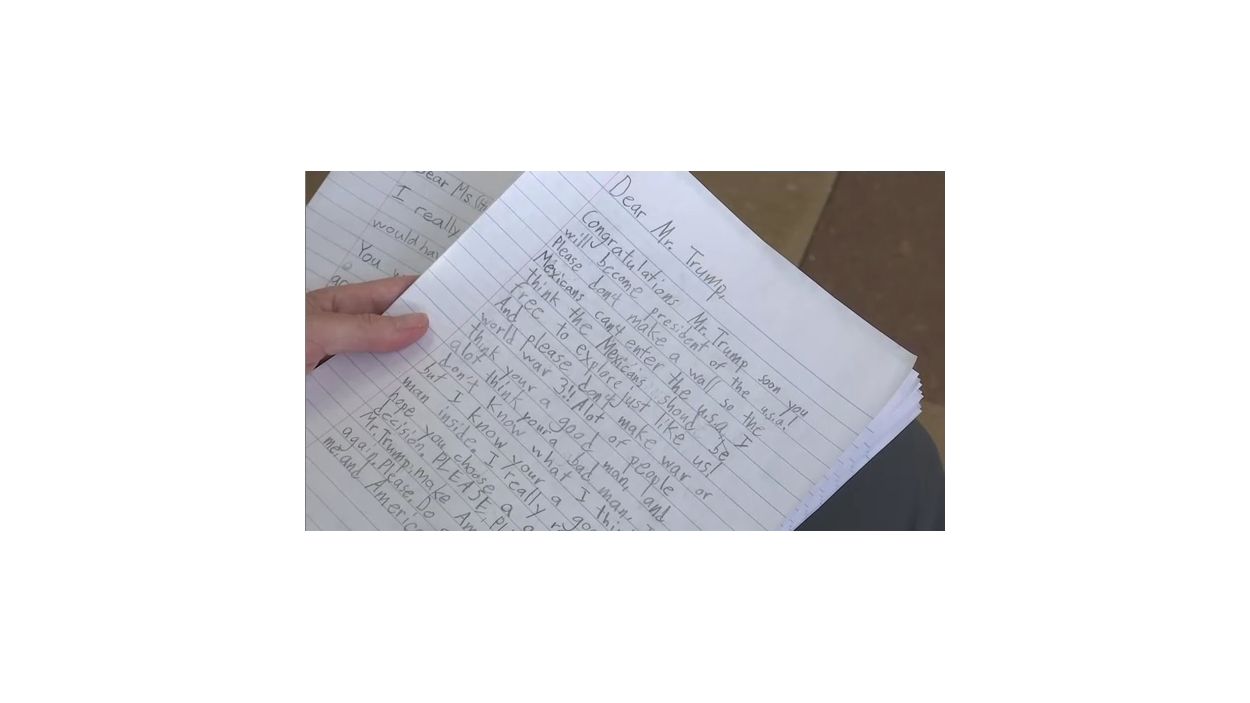 Dear Ms.
I really
would
You
Dear Mr. Trump,
Congratulations Mr. Trump soon you
will become president of the u.s.a!
Please don't make a wall so the
Mexicans can't enter the u.s.a. I
think the Mexicans should be
free to explore just like us!
And please don't make war or
world war 3!! Alot of people
think your a good man, and
alot think your a bad man. I
don't know what I thi
but I know your a goo
man inside. I really
hope you choose a
decision. PLEASE, PL
Mr. Trump, make Am
again. Please. Do
me, and America